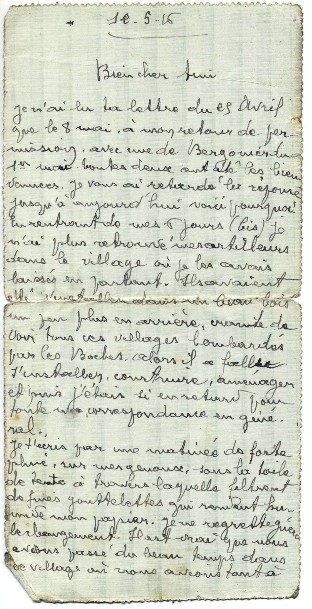 12-5-16
Bien cher Ami
Je n'ai lu ta lettre du 25 Avril
que le 8 mai, à mon retour de per
mission, avec une de Bergougnioux du
1er mai. toutes deux ont été les bien
venues. Je vous ai retardé la réponse
jusqu'à aujourd'hui voici pourquoi
En rentrant de mes 6 jours (bis) je
n'ai plus retrouvé mes artilleurs
dans le village où je les avais
laissés en partant. Ils avaient
été s'installer dans un beau bois
un peu plus en arrière, ennuyé de
voir tous ces villages bombardés
par les Boches. alors il a fallu
s'installer, construire, aménager
et puis j'étais si en retard pour
toute ma correspondance en géné
ral..
Je t'écris par une matinée de forte
pluie, sur mes genoux, sous la toile
de tente à travers laquelle filtrent
de fines gouttelettes qui rendent hu
mide mon papier. Je ne regrette que
le changement. Il est vrai que nous
avions passé du beau temps dans
ce village où nous avions tant à